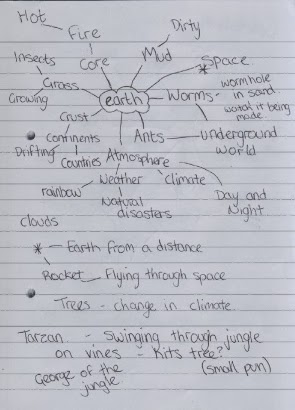 Hot
Fire
Dirty
Insects
Core
Mud
* Space
Grass
Growing
earth
Worms - wormhole
in sand
watch it being
made.
Crust
Ants
Underground
world
Continents
Drifting
Countries
Atmosphere
Weather
Climate
rainbow
Natural
disasters
Day and
Night
Clouds
* - Earth from a distance
Rocket - Flying through space
Trees - change in climate.
Tarzan - Swinging through jungle
on vines - Kits tree?
George of the
jungle
(small pun)